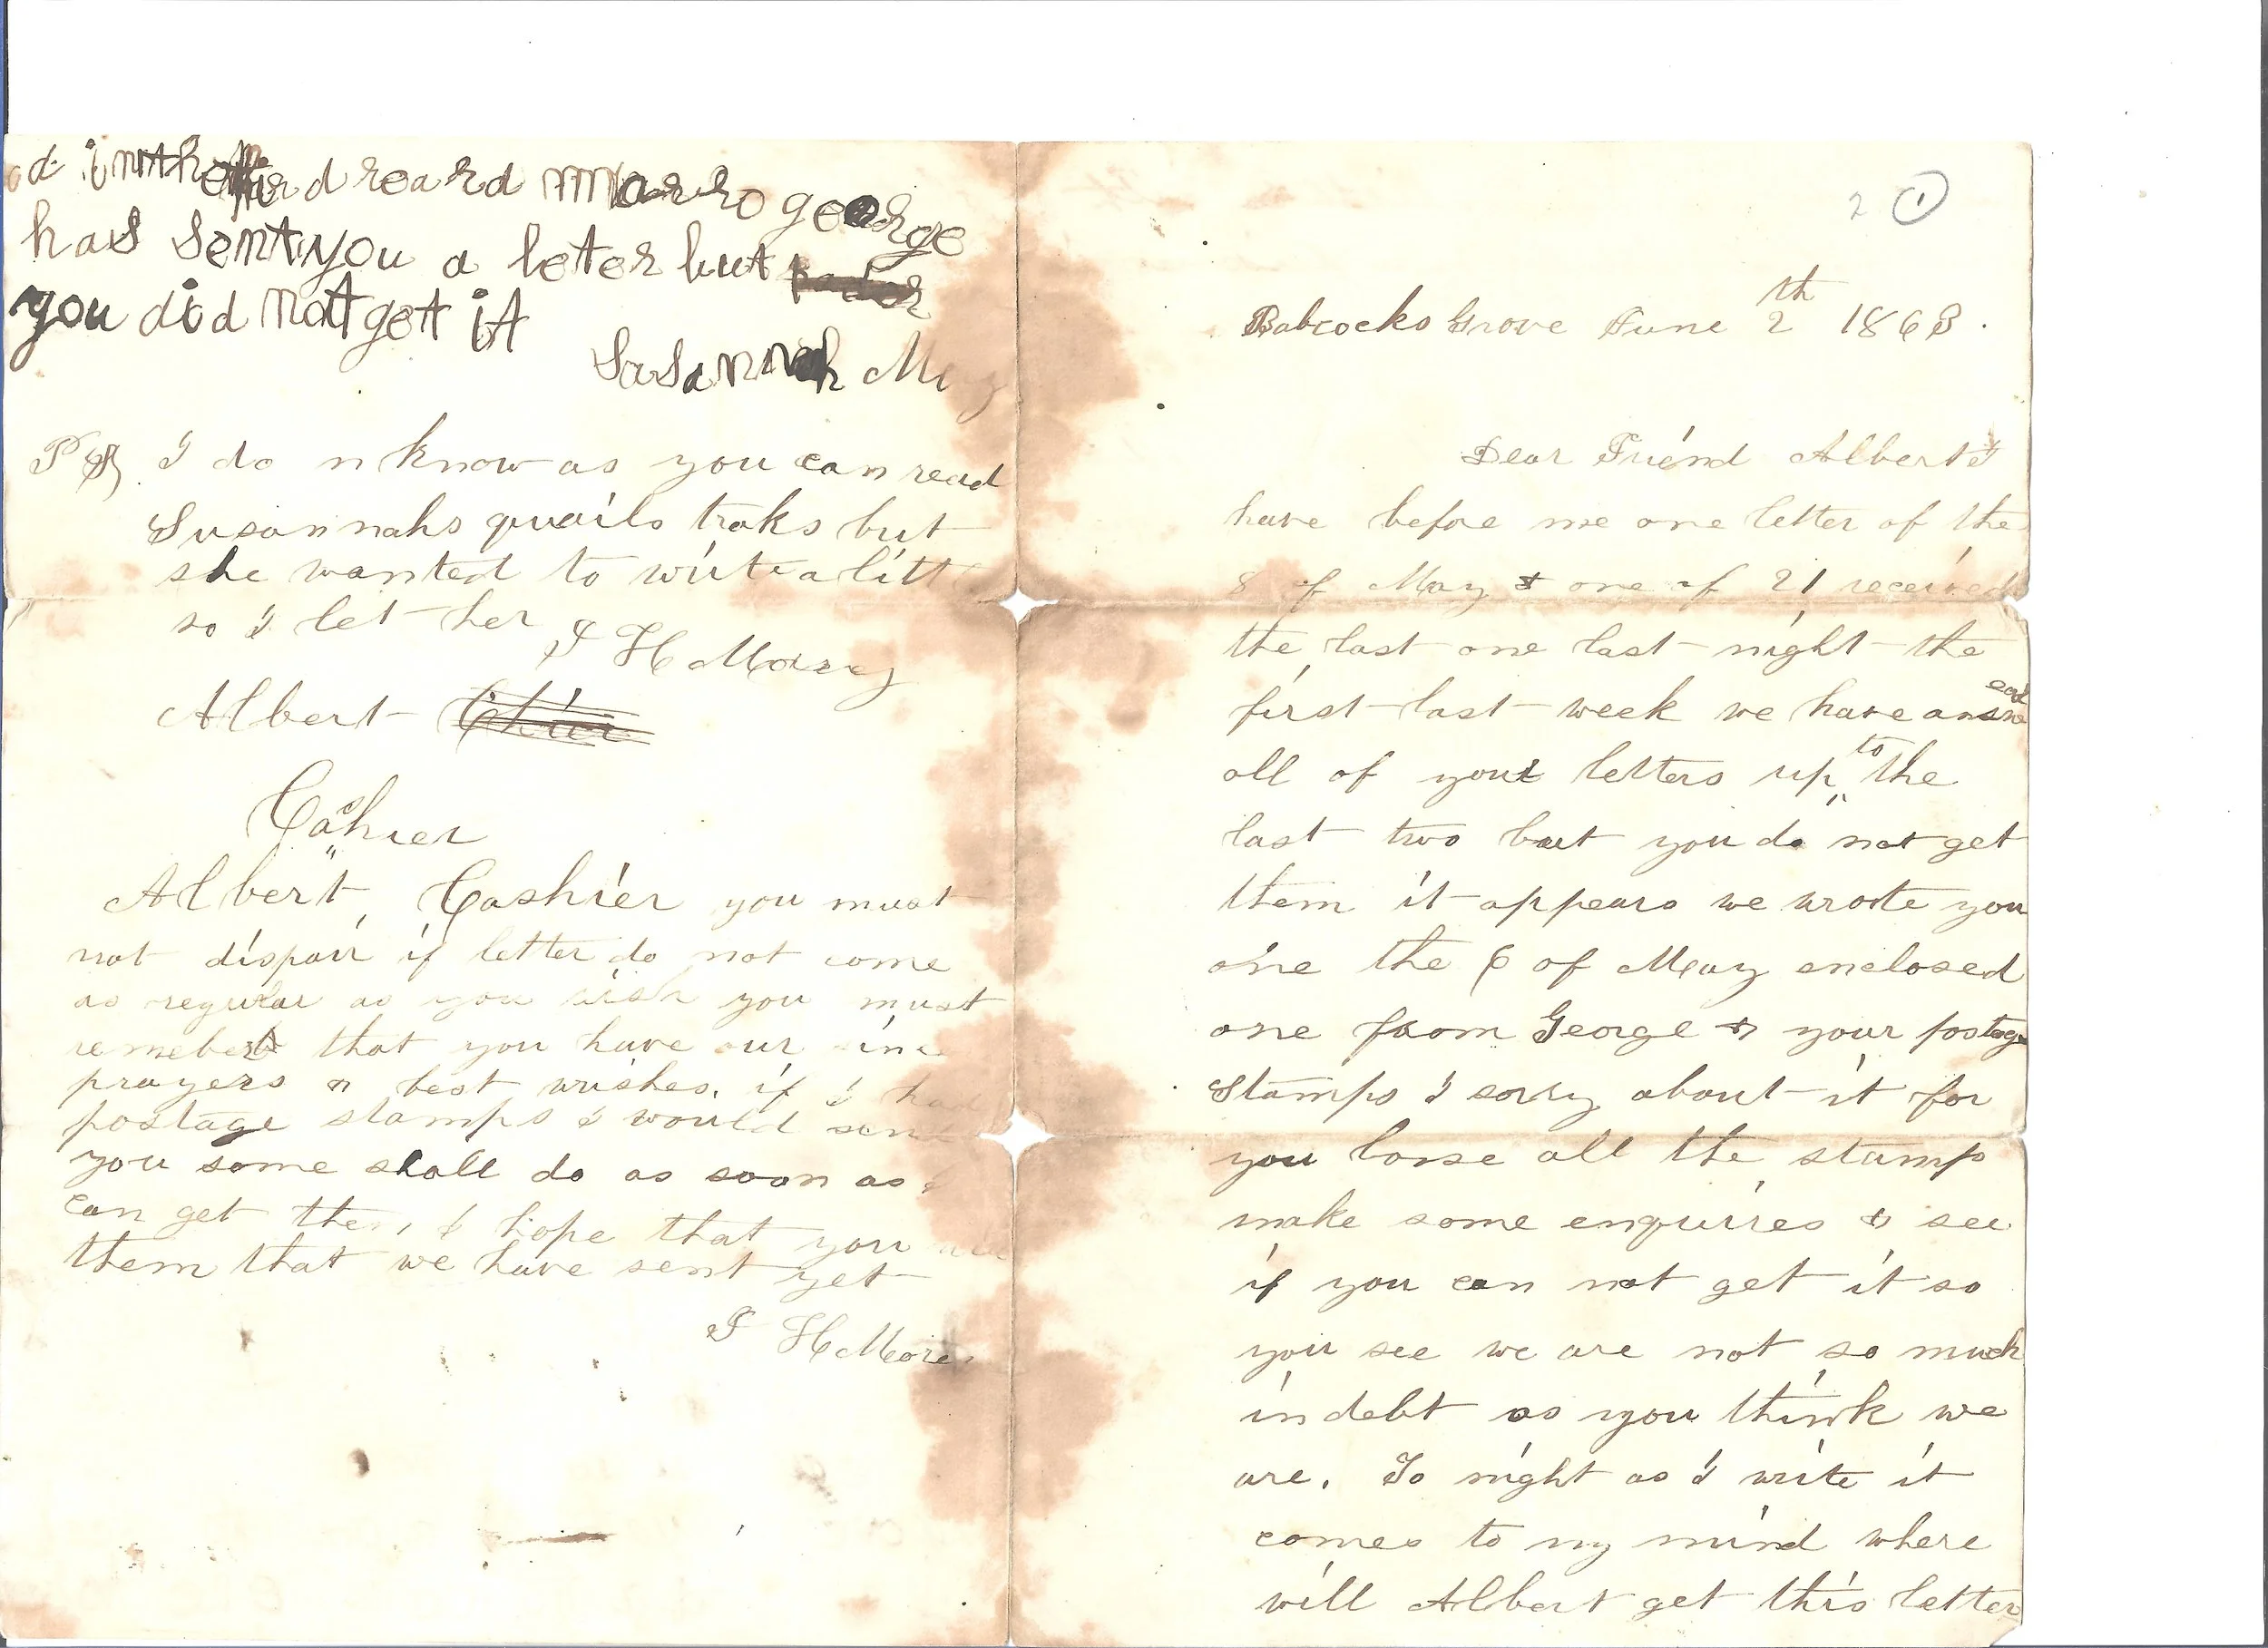 d in the third reard marro george
has sent you a leter but
you did not get it
Susannah May
PS I do n know as you can read
Susannahs quails traks but
she wanted to write a litt
so I let her
I H Morey
Albert
Cashier
Albert Cashier you must
not dispair if letter do not come
as regular as you wish you must
remeber that you have our
prayers & best wishes. if I had
postage stamps I would sen
you some shall do as soon as
can get the I hope that you
them that we have sent yet
I H More
2 1
Babcocks Grove June 2th 1863.
Dear Friend Albert I
have before me one letter of the
8 of May & one of 21 received
the last one last night the
first last week we have answeard
all of your letters up to the
last two but you do not get
them it appears we wrote you
one the 6 of May enclosed
one from George & your postage
Stamps I sorry about it for
you loose all the stamp
make some enquiries & see
if you can not get it so
you see we are not so much
in debt as you think we
are. To night as I write it
comes to my mind where
will Albert get this letter